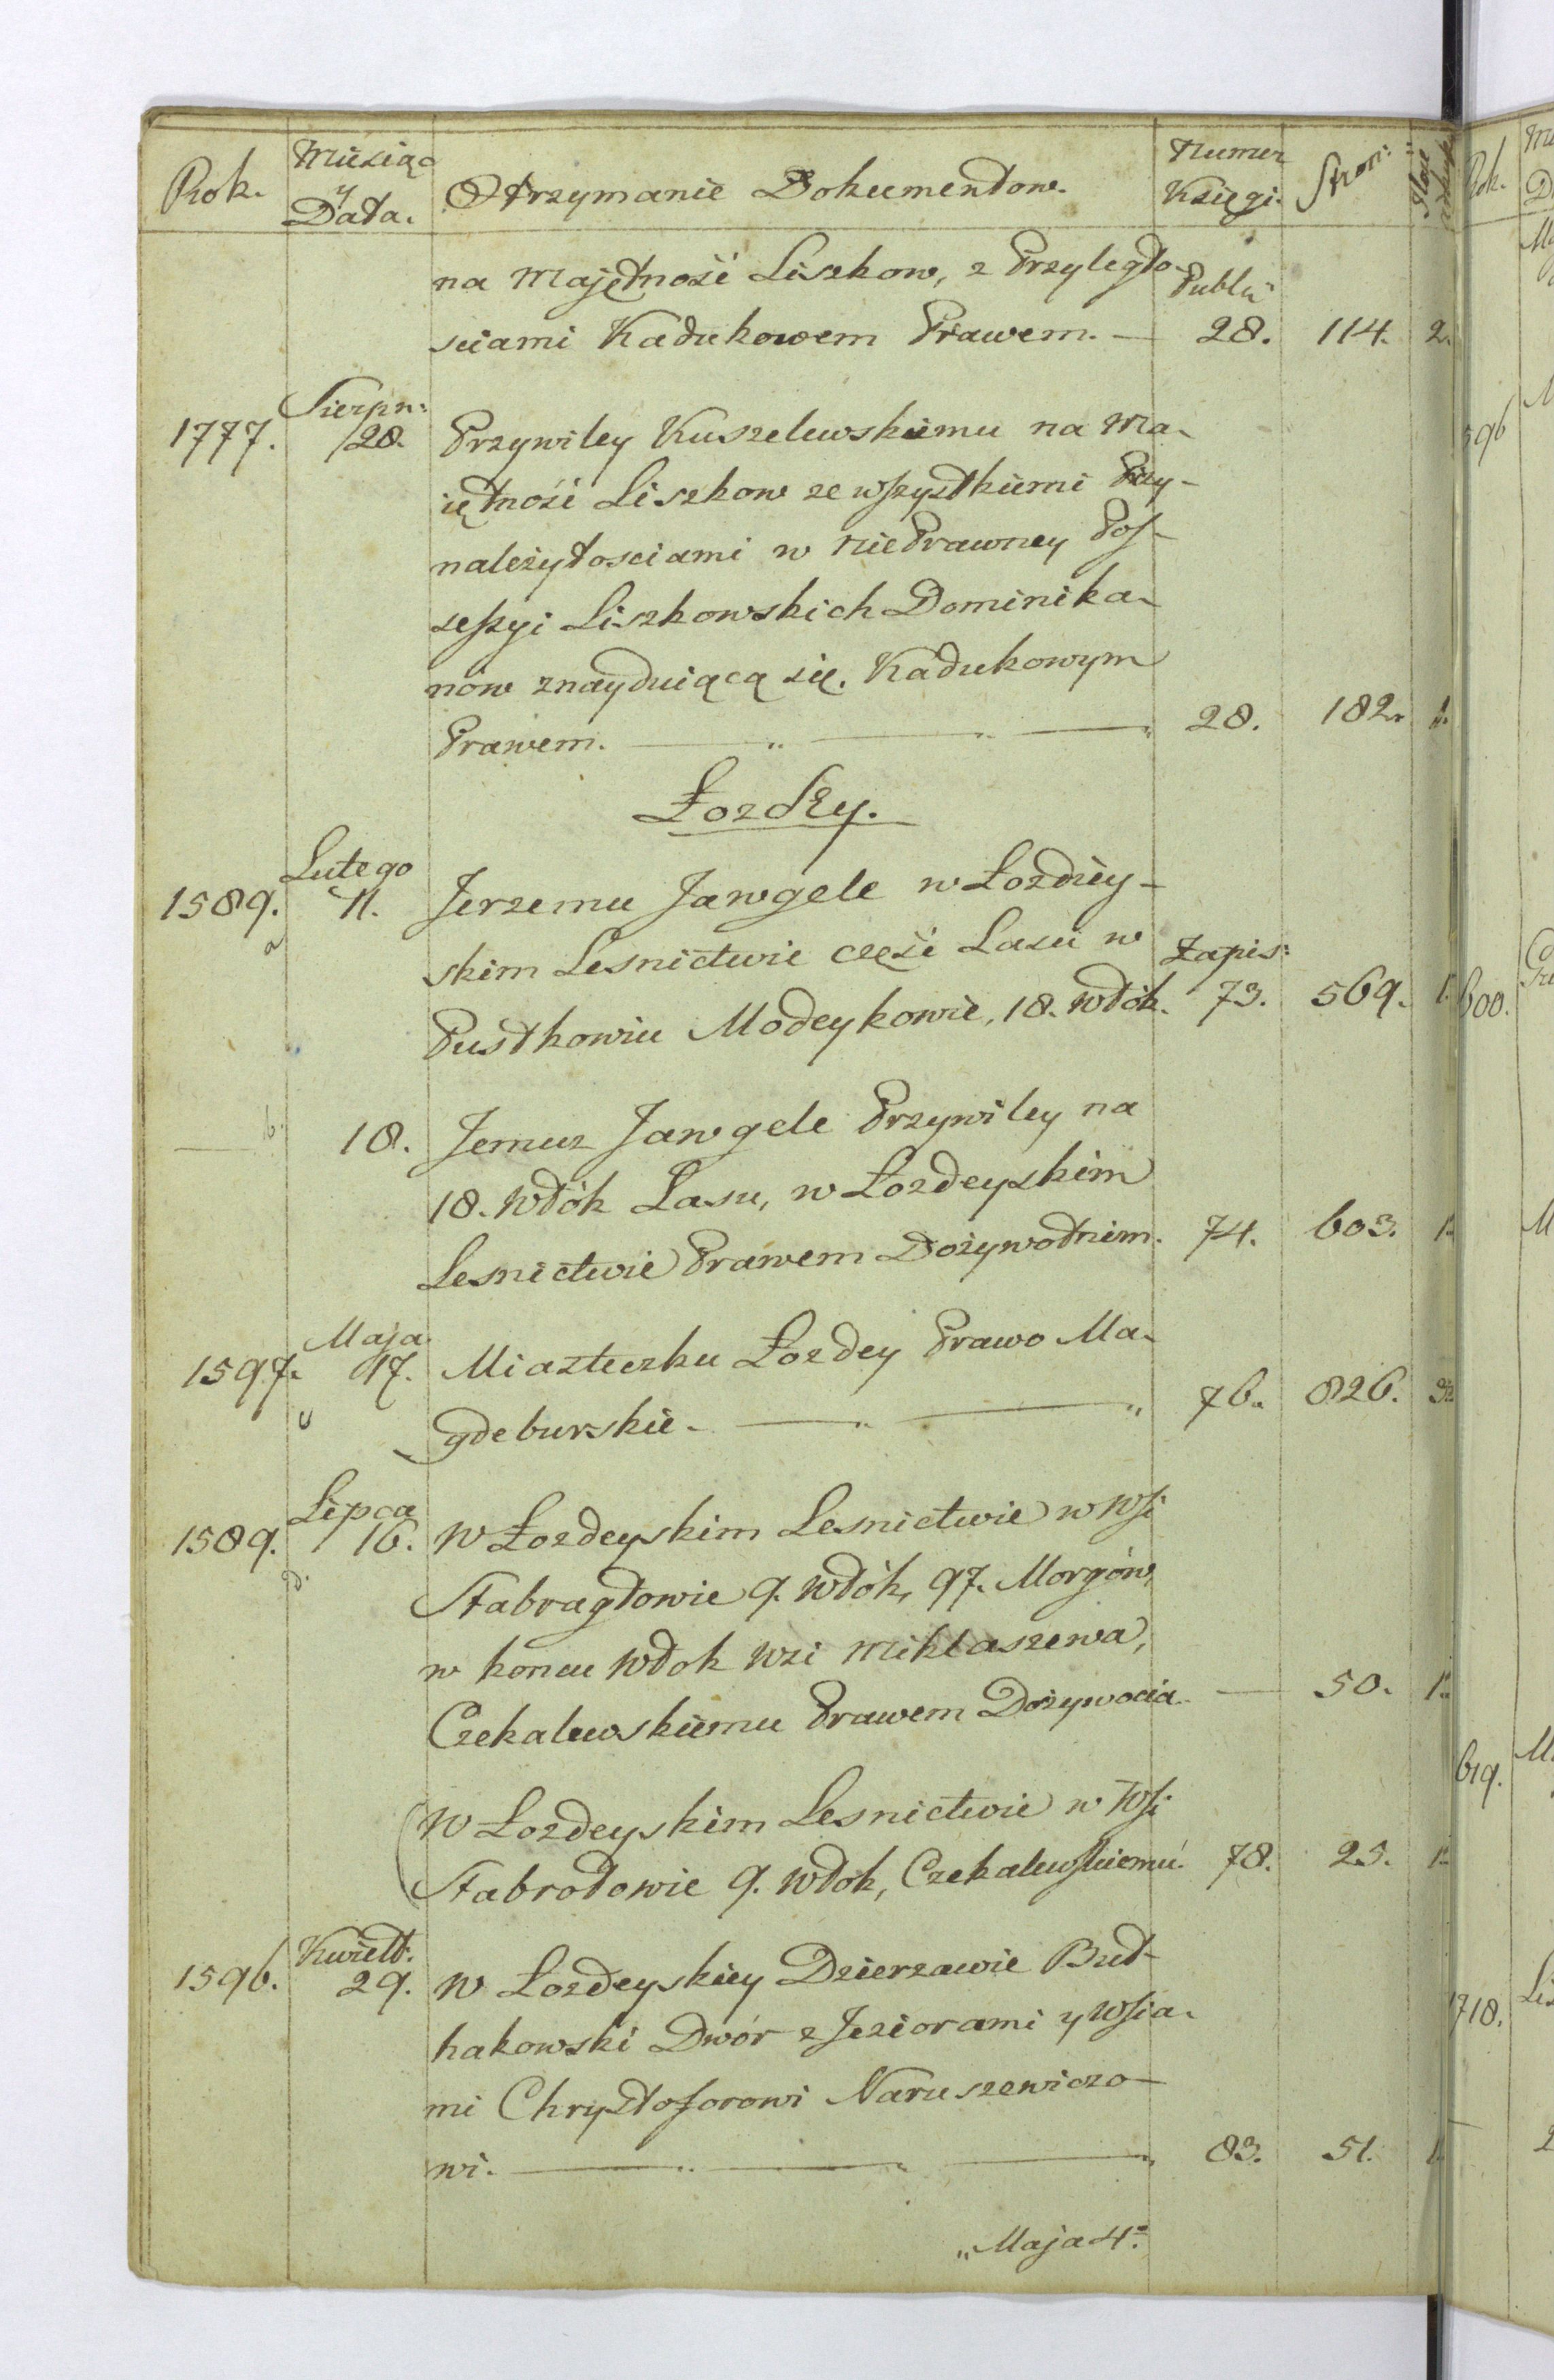 Rok. Miesiąc y Data. Otrzymanie Dokumentow. Numer Księgi. Stron:
na Majętność Liszkow, z Przyległo- Publi:
sciami Kadukowem Prawem. — 28. 114. 2.
1777. Sierpn: 28. Przywiley Kuszelewskiemu na Ma-
iętność Liszkow ze wszystkiemi Przy-
należytosciami w nie Prawney Pos-
sessyi Liszkowskich Dominika-
nów znayduiącą się. Kadukowym
Prawem. — 28. 182. 1.
Łozdzy.
1589. Lutego 11. Jerzemu Jawgele w Łozdziey-
a
skim Lesnictwie część Lasu w Zapis:
Pustkowiu Modeykowie, 18. Włók. 73. 569. 1.
— b. 18. Jemuz Jawgele Przywiley na
18. Włók Lasu, w Łozdeyskim
Lesnictwie Prawem Dożywotnim. 74. 603. 1.
1597. Maja 17. Miasteczku Łozdey Prawo Ma-
c
gdeburskie. — 76. 826.
1589. Lipca 16. W Łozdeyskim Lesnictwie w Wsi
d.
Stabragłowie 9. Włók, 97. Morgów,
w koncu Włok Wsi Miklaszewa,
Czekalewskiemu Prawem Dożywocia. — 50. 1.
W Łozdeyskim Lesnictwie w Wsi
Stabrołowie 9. Włok, Czekalewskiemu. 78. 25. 1.
1596. Kwiett: 29. W Łozdeyskiey Dzierzawie But-
hakowski Dwór z Jeziorami y Wsia-
mi Chrysztoforowi Naruszewiczo-
wi. — 83. 51. 1.
„Maja 4.